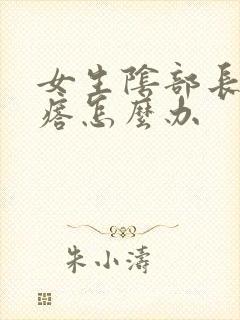 女生陰部長
痞怎麼办
朱小濤